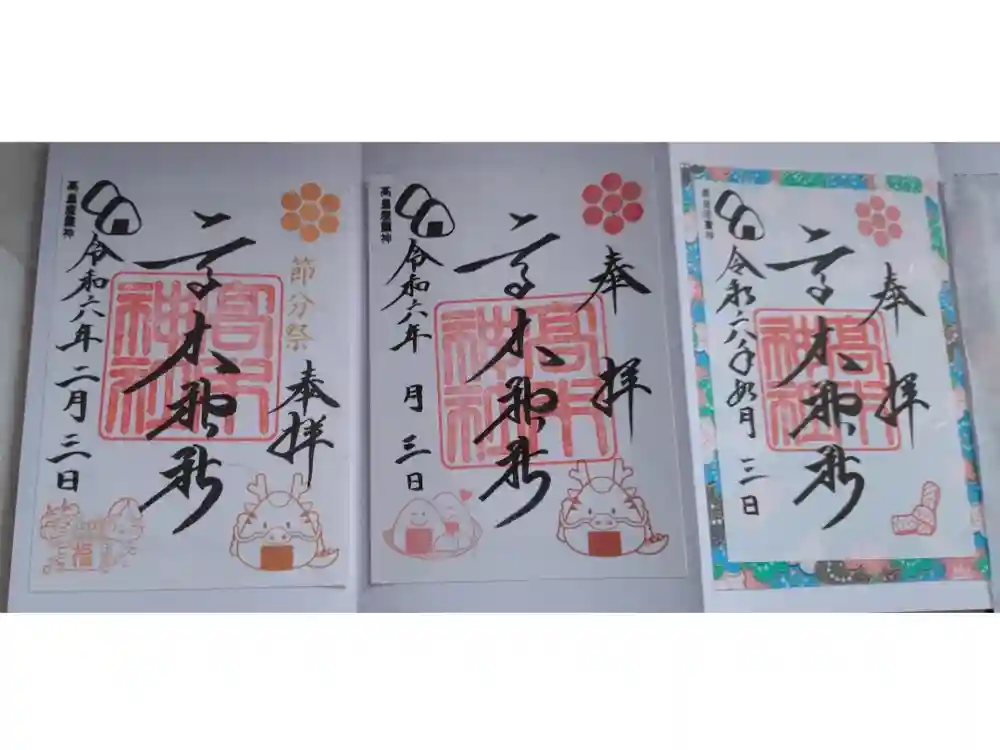 節分祭
奉拝
高木神社
高木神社
令和六年二月三日
高皇産靈神
福
奉拝
高木神社
高木神社
令和六年 月 三日
高皇産靈神
奉拝
高木神社
高木神社
令和六年如月三日
高皇産靈神